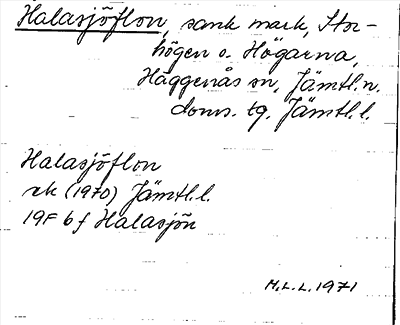 Halasjöflon, sank mark, Stor-
högen o. Högarna,
Häggenås sn, Jämtl.n.
doms. tg. Jämtl.l.
Halasjöflon
rk (1970) Jämtl.l.
19F 6 f Halasjön
H.L.L. 1971